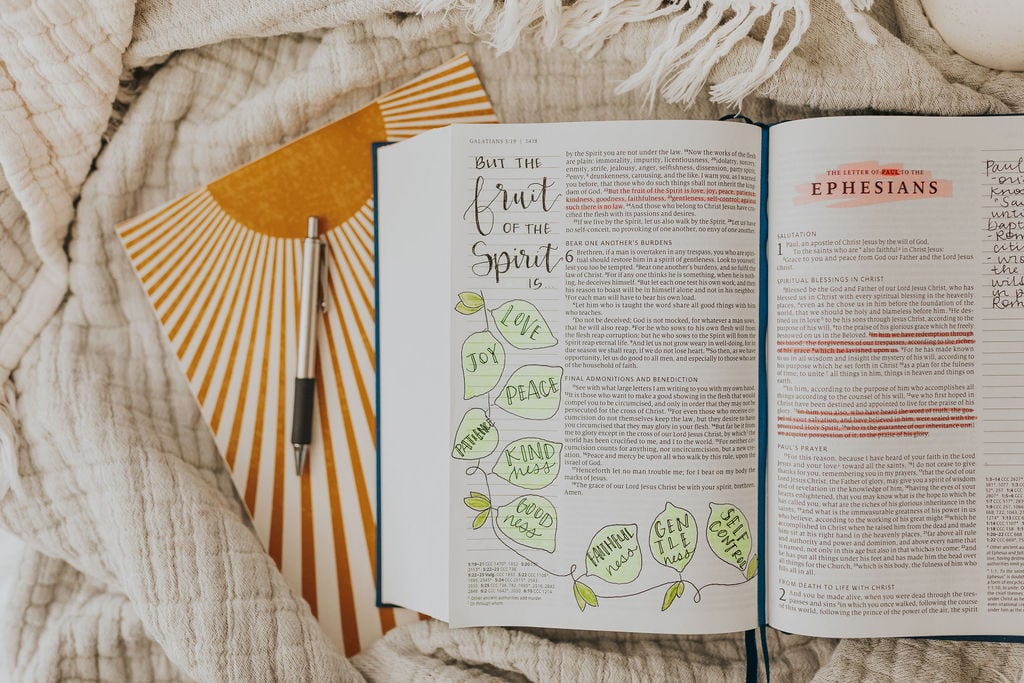 GALATIANS 5:19 | 1418
BUT THE
fruit
OF THE
Spirit
IS...
LOVE
JOY
PEACE
PATIENCE
KIND
ness
GOOD
ness
FAITHFUL
ness
GEN
TLE
ness
SELF
CONTROL
by the Spirit you are not under the law. 19Now the works of the flesh
are plain: immorality, impurity, licentiousness, 20idolatry, sorcery,
enmity, strife, jealousy, anger, selfishness, dissension, party spirit,
21envy, drunkenness, carousing, and the like. I warn you, as I warned
you before, that those who do such things shall not inherit the king-
dom of God. 22But the fruit of the Spirit is love, joy, peace, patience,
kindness, goodness, faithfulness, 23gentleness, self-control; against
such there is no law. 24And those who belong to Christ Jesus have cru-
cified the flesh with its passions and desires.
25If we live by the Spirit, let us also walk by the Spirit. 26Let us have
no self-conceit, no provoking of one another, no envy of one another.
BEAR ONE ANOTHER'S BURDENS
6 Brethren, if a man is overtaken in any trespass, you who are spir-
itual should restore him in a spirit of gentleness. Look to yourself,
lest you too be tempted. 2Bear one another's burdens, and so fulfil the
law of Christ. 3For if any one thinks he is something, when he is noth-
ing, he deceives himself. 4But let each one test his own work, and then
his reason to boast will be in himself alone and not in his neighbor.
5For each man will have to bear his own load.
6Let him who is taught the word share all good things with him
who teaches.
7Do not be deceived; God is not mocked, for whatever a man sows,
that he will also reap. 8For he who sows to his own flesh will from
the flesh reap corruption; but he who sows to the Spirit will from the
Spirit reap eternal life. 9And let us not grow weary in well-doing, for in
due season we shall reap, if we do not lose heart. 10So then, as we have
opportunity, let us do good to all men, and especially to those who are
of the household of faith.
FINAL ADMONITIONS AND BENEDICTION
11See with what large letters I am writing to you with my own hand.
12It is those who want to make a good showing in the flesh that would
compel you to be circumcised, and only in order that they may not be
persecuted for the cross of Christ. 13For even those who receive cir-
cumcision do not themselves keep the law, but they desire to have
you circumcised that they may glory in your flesh. 14But far be it from
me to glory except in the cross of our Lord Jesus Christ, by which the
world has been crucified to me, and I to the world. 15For neither cir-
cumcision counts for anything, nor uncircumcision, but a new cre-
ation. 16Peace and mercy be upon all who walk by this rule, upon the
Israel of God.
17Henceforth let no man trouble me; for I bear on my body the
marks of Jesus.
18The grace of our Lord Jesus Christ be with your spirit, brethren.
Amen.
THE LETTER OF PAUL TO THE
EPHESIANS
SALUTATION
1 Paul, an apostle of Christ Jesus by the will of God,
To the saints who are also faithful in Christ Jesus:
2Grace to you and peace from God our Father and the Lord Jesus
Christ.
SPIRITUAL BLESSINGS IN CHRIST
3Blessed be the God and Father of our Lord Jesus Christ, who has
blessed us in Christ with every spiritual blessing in the heavenly
places, 4even as he chose us in him before the foundation of the
world, that we should be holy and blameless before him. 5He des-
tined us in love to be his sons through Jesus Christ, according to the
purpose of his will, 6to the praise of his glorious grace which he freely
bestowed on us in the Beloved. 7In him we have redemption through
his blood, the forgiveness of our trespasses, according to the riches
of his grace 8which he lavished upon us. 9For he has made known
to us in all wisdom and insight the mystery of his will, according to
his purpose which he set forth in Christ 10as a plan for the fulness
of time, to unite all things in him, things in heaven and things on
earth.
11In him, according to the purpose of him who accomplishes all
things according to the counsel of his will, 12we who first hoped in
Christ have been destined and appointed to live for the praise of his
glory. 13In him you also, who have heard the word of truth, the gos-
pel of your salvation, and have believed in him, were sealed with the
promised Holy Spirit, 14who is the guarantee of our inheritance until
we acquire possession of it, to the praise of his glory.
PAUL'S PRAYER
15For this reason, because I have heard of your faith in the Lord
Jesus and your love toward all the saints, 16I do not cease to give
thanks for you, remembering you in my prayers, 17that the God of
our Lord Jesus Christ, the Father of glory, may give you a spirit of wisdom
and of revelation in the knowledge of him, 18having the eyes of your
hearts enlightened, that you may know what is the hope to which he
has called you, what are the riches of his glorious inheritance in the
saints, 19and what is the immeasurable greatness of his power in us
who believe, according to the working of his great might 20which he
accomplished in Christ when he raised him from the dead and made
him sit at his right hand in the heavenly places, 21far above all rule
and authority and power and dominion, and above every name that
is named, not only in this age but also in that which is to come; 22and
he has put all things under his feet and has made him the head over
all things for the church, 23which is his body, the fulness of him who
fills all in all.
FROM DEATH TO LIFE WITH CHRIST
2 And you he made alive, when you were dead through the tres-
passes and sins 2in which you once walked, following the course
of this world, following the prince of the power of the air, the spirit
Paul